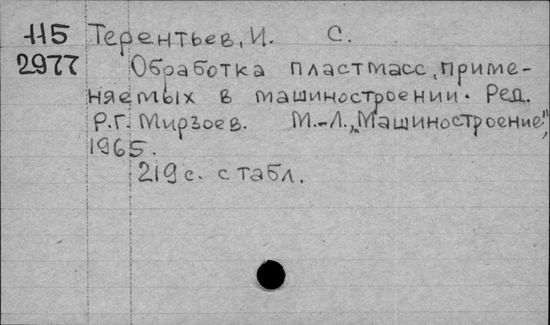 115 Терентьев, И. С.
2977 Обработка пластмасс, приме-
няемых в машиностроении. Ред.
Р.Г. Мирзоев. М.-Л., „Машиностроение",
1965.
219 с. с табл.